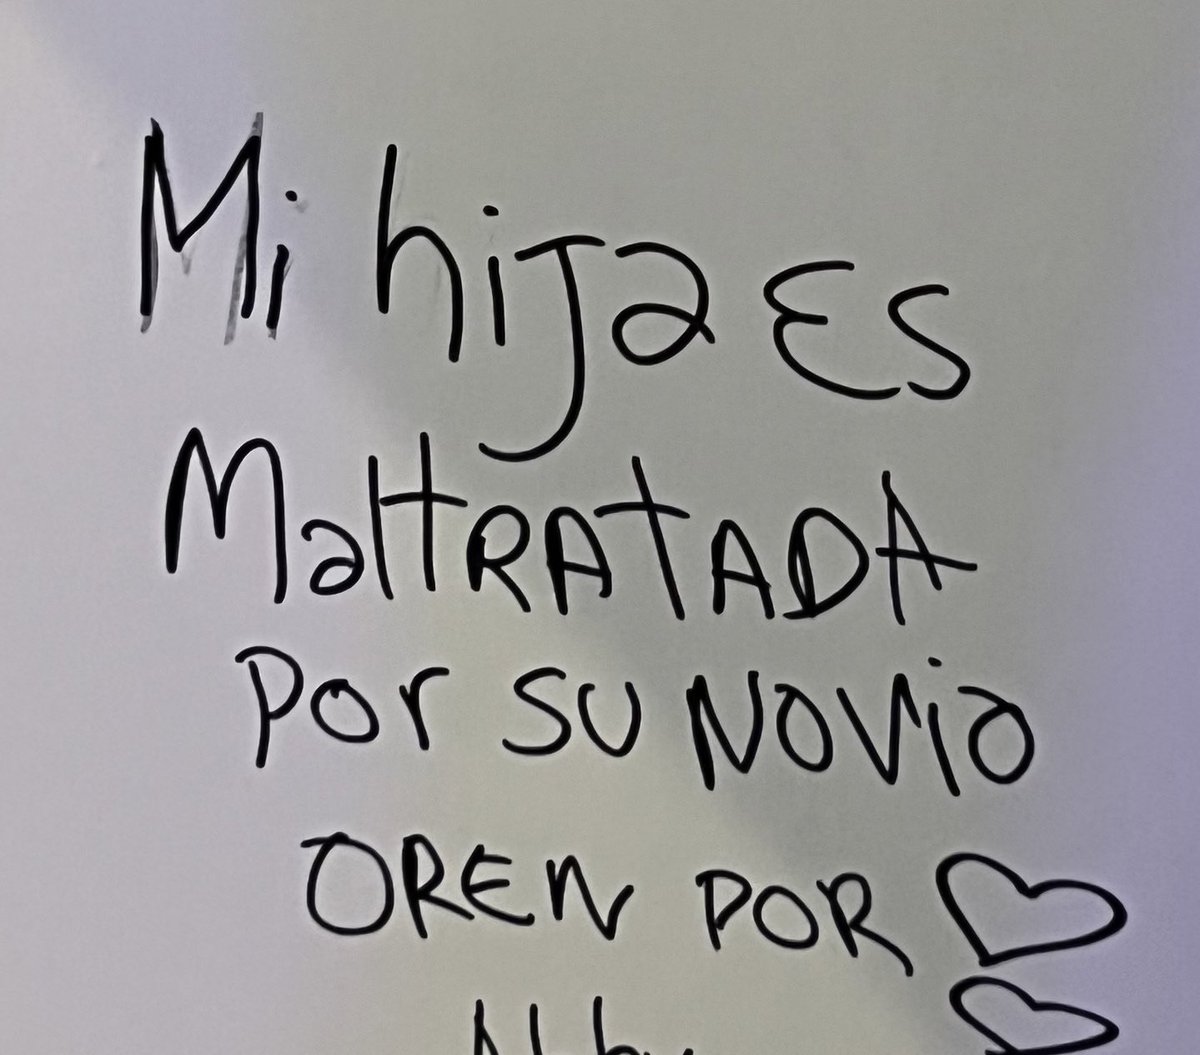 Mi hija es
Maltratada
Por su novio
Oren por